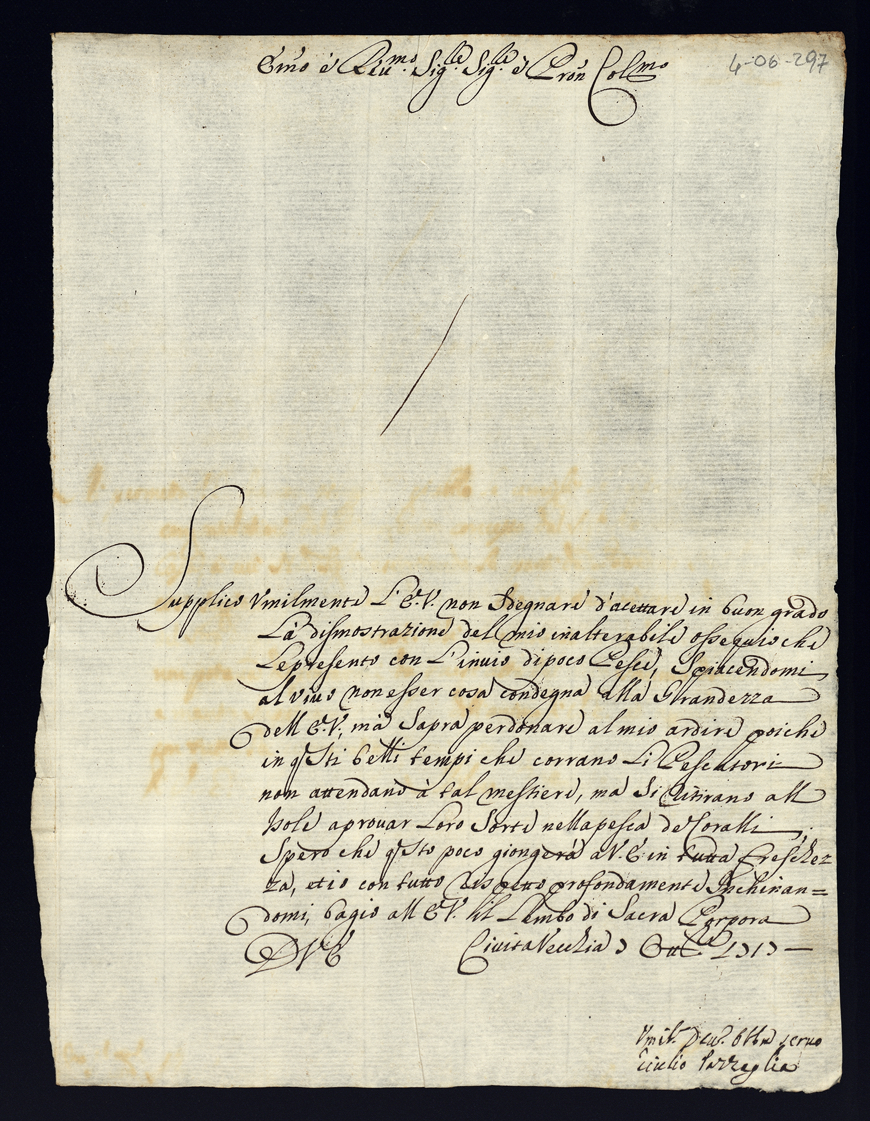 Em̃o è Reu.mo Sig.re Sig.re è Pron̄ Colmo
4-06-297
Supplico Vmilmente L'E.V. non Sdegnare d'acettare in buon grado
La dismostrazione del mio inalterabile ossequio che
Lepresento con L'inuio di poco Pesce, Spiacendomi
al viuo non esser cosa condegna alla Grandezza
dell E.V., mà Saprà perdonare al mio ardire poiche
in q̃sti belli tempi che corrano Li Pescatori
non attendano à tal mestiere, ma Si ritirano all
Isole aprouar Loro Sorte nella pesca de Coralli;
Spero che q̃sto poco giongerà a V.E. in tutta Freschez=
za, et io con tutto Rispetto profondamente Inchinan=
domi, bagio all E.V. il Lembo di Sacra Porpora
D V E Ciuita Vecchia
Vmil.o Deu.o seruo